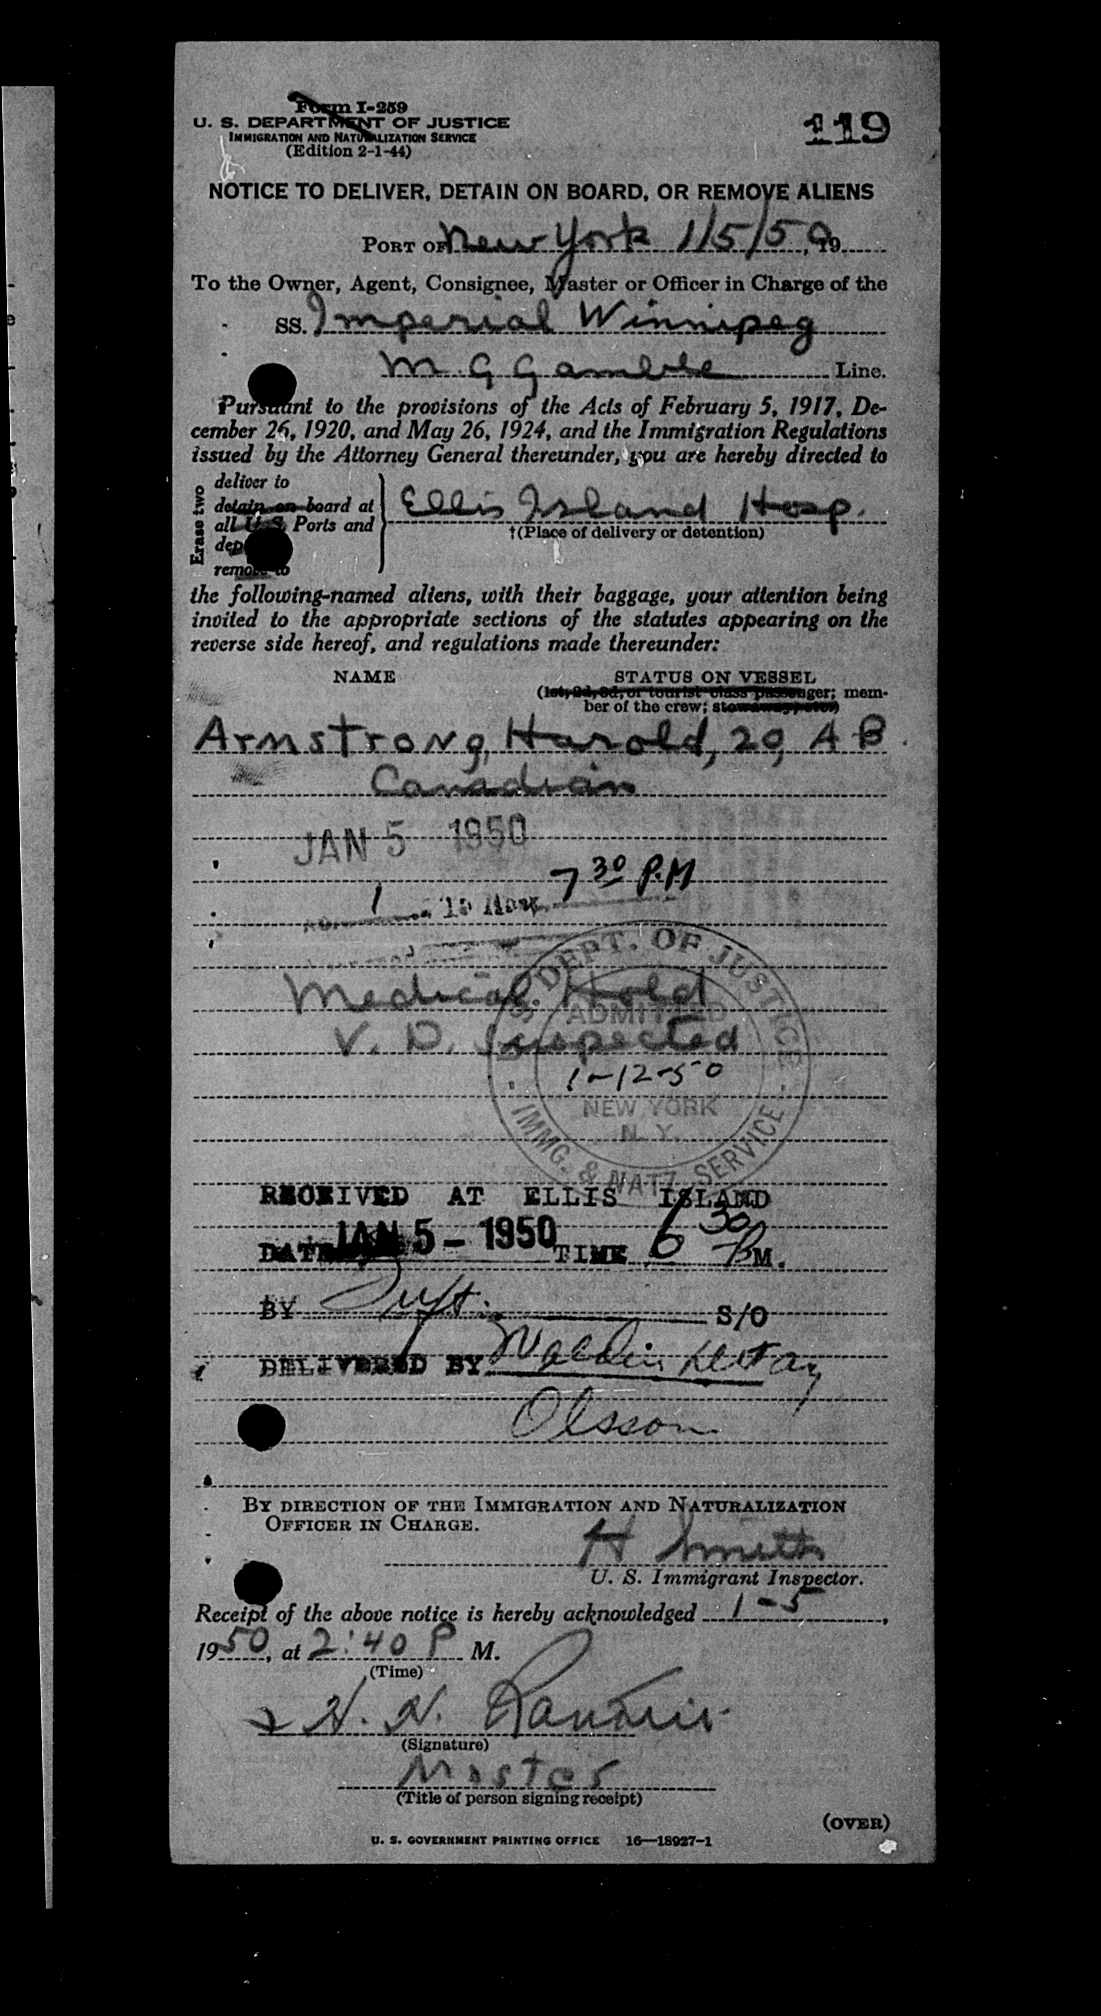 Form I-259
119
U. S. DEPARTMENT OF JUSTICE
IMMIGRATION AND NATURALIZATION SERVICE
(Edition 2-1-44)
NOTICE TO DELIVER, DETAIN ON BOARD, OR REMOVE ALIENS
PORT OF New York 1/5/50, 19
To the Owner, Agent, Consignee, Master or Officer in Charge of the
SS. Imperial Winnipeg
M G Gamble Line.
Pursuant to the provisions of the Acts of February 5, 1917, De-
cember 26, 1920, and May 26, 1924, and the Immigration Regulations
issued by the Attorney General thereunder, you are hereby directed to
Erase two
deliver to
detain on board at
all U.S. Ports and
remove to
Ellis Island Hosp.
†(Place of delivery or detention)
the following-named aliens, with their baggage, your attention being
invited to the appropriate sections of the statutes appearing on the
reverse side hereof, and regulations made thereunder:
NAME STATUS ON VESSEL
(1st, 2d, 3d, or tourist class passenger; mem-
ber of the crew; stowaway, etc.)
Armstrong, Harold, 29, A B
Canadian
JAN 5 1950
7 30 P.M
1
Medical Hold
V. D. Suspected
U.S. DEPT. OF JUSTICE
ADMITTED
1-12-50
NEW YORK
N. Y.
IMMG. & NATZ. SERVICE
RECEIVED AT ELLIS ISLAND
DATE JAN 5 - 1950 TIME 6 30 P M.
BY S/O
DELIVERED BY
Olsson
BY DIRECTION OF THE IMMIGRATION AND NATURALIZATION
OFFICER IN CHARGE.
H Smith
U. S. Immigrant Inspector.
Receipt of the above notice is hereby acknowledged 1-5,
1950, at 2:40 P M.
(Time)
H. N.
(Signature)
Master
(Title of person signing receipt)
(OVER)
U. S. GOVERNMENT PRINTING OFFICE 16—18927-1